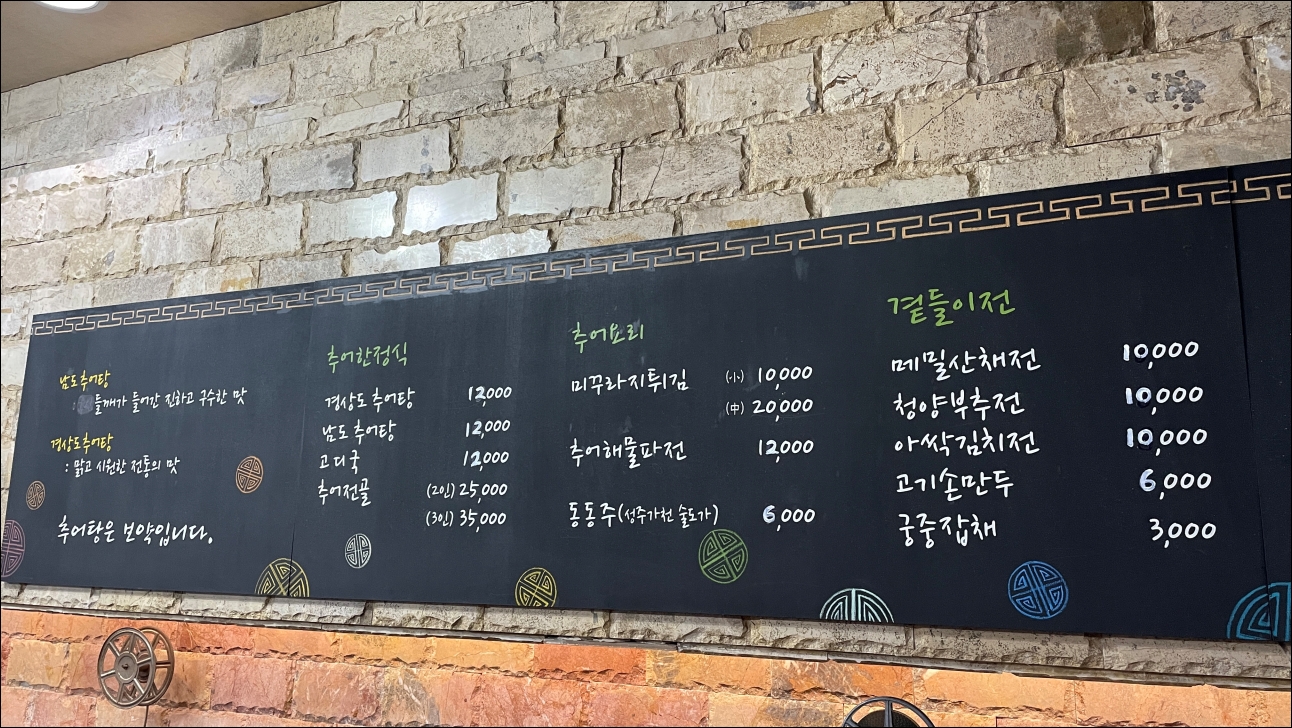 남도추어탕
: 들깨가 들어간 진하고 구수한 맛
경상도추어탕
: 맑고 시원한 전통의 맛
추어탕은 보약입니다.
추어한정식
경상도 추어탕 12,000
남도 추어탕 12,000
고디국 12,000
추어전골 (2인) 25,000
(3인) 35,000
추어요리
미꾸라지튀김 (小) 10,000
(中) 20,000
추어해물파전 12,000
동동주(성주가천 술도가) 6,000
곁들이전
메밀산채전 10,000
청양부추전 10,000
아싹김치전 10,000
고기손만두 6,000
궁중잡채 3,000